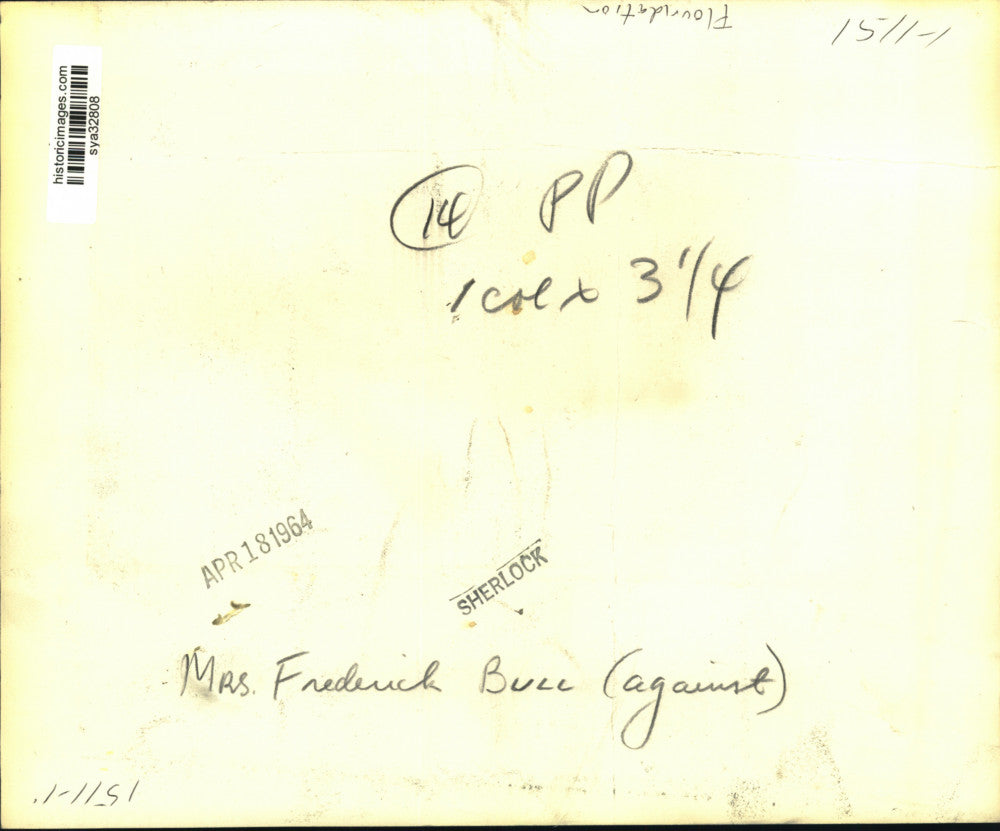 Flouridation
1511-1
historicimages.com
sya32808
14 PP
1 col x 3 1/4
APR 18 1964
SHERLOCK
Mrs. Frederick Bull (against)
1511-1.